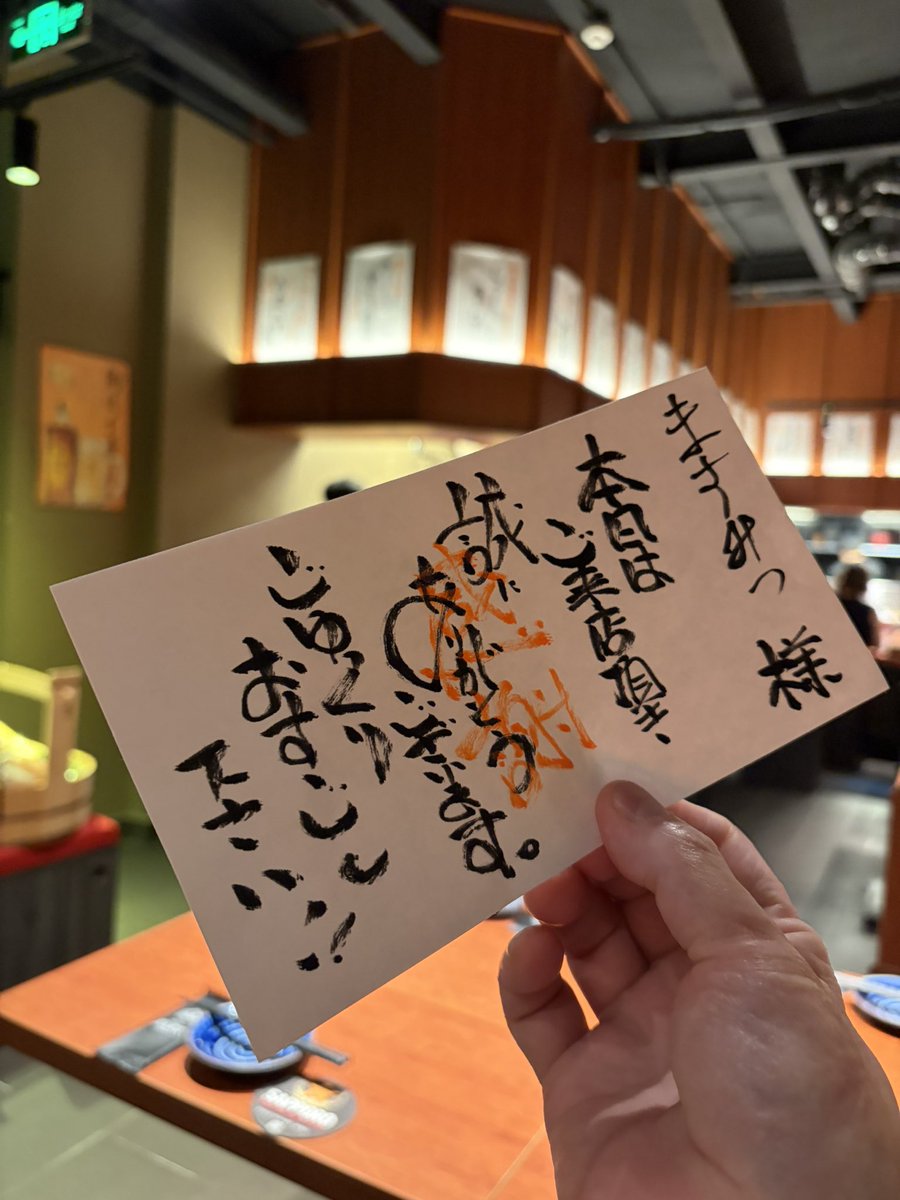 様
本日は
ご来店頂き、
誠に
ありがとうございます。
感謝
ごゆっくり
おすごし
下さい!!